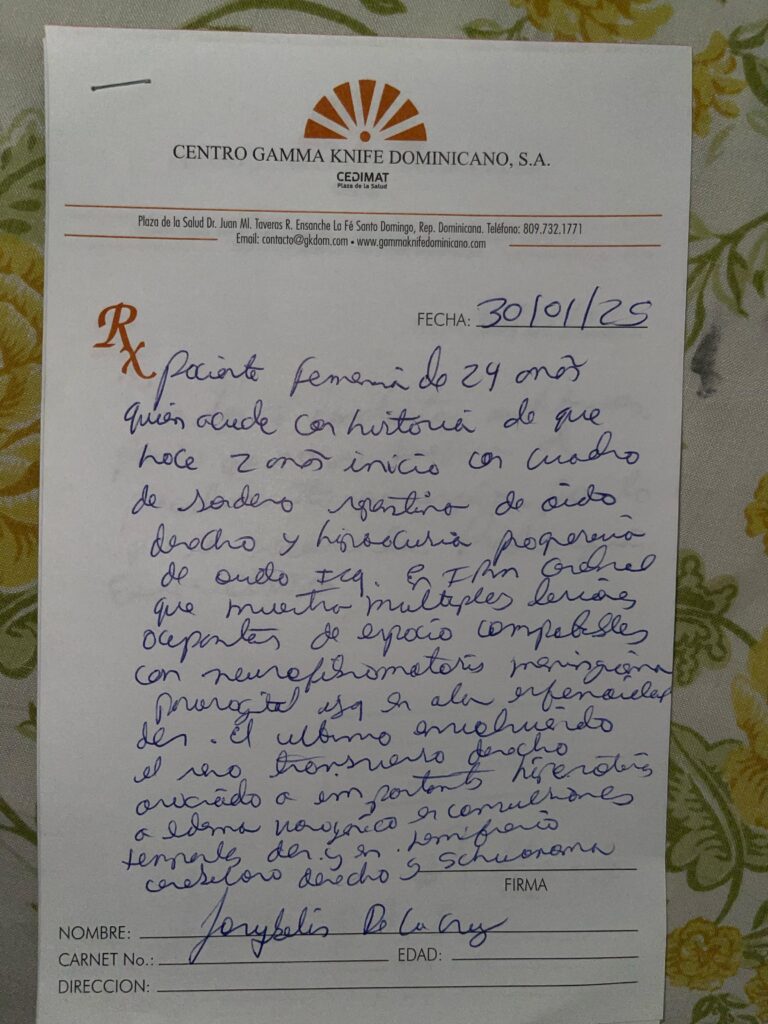 CENTRO GAMMA KNIFE DOMINICANO, S.A.
CEDIMAT
Plaza de la Salud
Plaza de la Salud Dr. Juan Ml. Taveras R. Ensanche La Fé Santo Domingo, Rep. Dominicana. Teléfono: 809.732.1771
Email: contacto@gkdom.com • www.gammaknifedominicano.com
FECHA: 30/01/25
Rx
Paciente femenina de 24 años
quien acude con historia de que
hace 2 años inicio con cuadro
de sordera repentina de oido
derecho y hipoacusia progresiva
de oido Izq. En IRM Cerebral
que muestra multiples lesiones
ocupantes de espacio compatibles
con neurofibromatosis meningioma
izq en ala esfenoidal
der. El ultimo envolviendo
el seno transverso derecho
asociado a importante
a edema vasogenico en
temporales der. y en hemisferio
derecho y Schwanoma
FIRMA
NOMBRE: De La Cruz
CARNET No.:
EDAD:
DIRECCION: